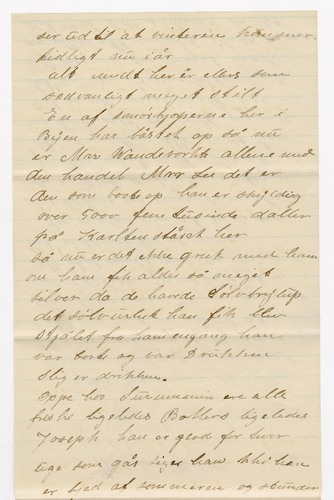 ser ud til at vinteren kommer
tidligt nu i år
alt rundt her er ellers som
sedvanligt meget stilt
En af smörkjoperne her i
Bÿen har låsset op så nu
er Mar Wandevorht allene med
den handel Mrr Lee det er
den som borte op han er skyldig
over 5000 fem Tusinde daller
på Karlten står her
så nu er det ikke grut med ham
om ham fik alder så meget
silver da de havde Sølvbrylup
det sölv uhret han fik blev
stjålet fra ham engang han
var borte og var Drukken
Slig er drikken.
oppe hos ere alle
friske ligeledes Bolters ligeledes
Joseph han er glad för hver
uge som går siger han
er kjed af sommeren og